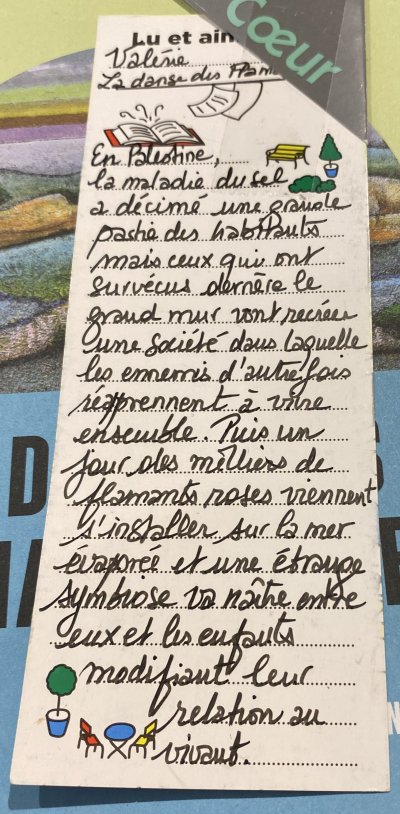 Cœur
Lu et aim
Valérie
La danse des Flam
En Palestine,
la maladie du sel
a décimé une grande
partie des habitants
mais ceux qui ont
survécus derrière le
grand mur vont recréer
une société dans laquelle
les ennemis d'autrefois
réapprennent à vivre
ensemble. Puis un
jour des milliers de
flamants roses viennent
s'installer sur la mer
évaporée et une étrange
symbiose va naître entre
eux et les enfants
modifiant leur
relation au
vivant.